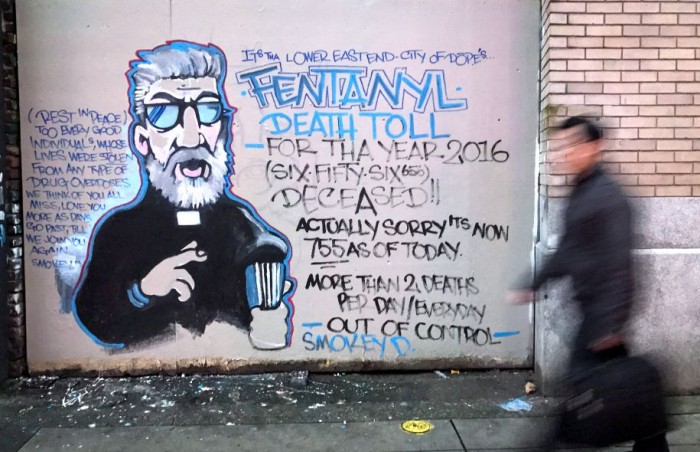 ITS THA LOWER EAST END-CITY OF DOPE'S...
FENTANYL
DEATH TOLL
-FOR THA YEAR 2016
(SIX-FIFTY-SIX 656)
DECEASED!!
ACTUALLY SORRY ITS NOW
755 AS OF TODAY.
MORE THAN 2 DEATHS
PER DAY/EVERYDAY
-OUT OF CONTROL-
SMOKEY D.
(REST IN PEACE)
TOO EVERY GOOD
INDIVIDUALS, WHOSE
LIVES WERE STOLEN
FROM ANY TYPE OF
DRUG OVERDOSES
WE THINK OF YOU ALL
MISS, LOVE YOU
MORE AS DAYS
GO PAST, TILL
WE JOIN YOU
AGAIN.
SMOKEY D.